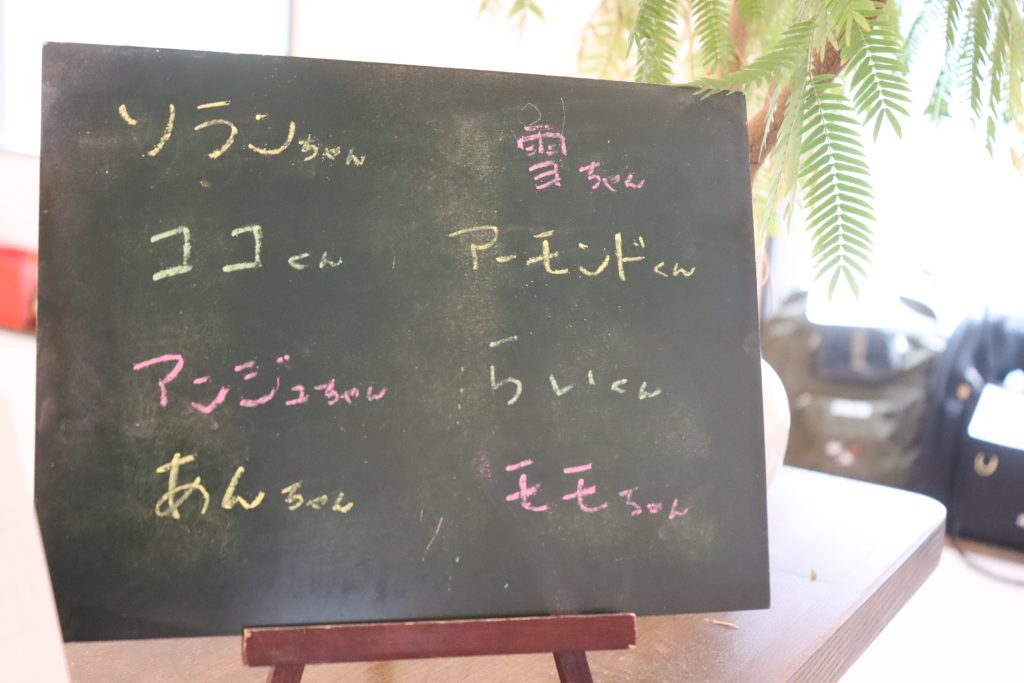 ソランちゃん
ココくん
アンジュちゃん
あんちゃん
雪ちゃん
アーモンドくん
らいくん
モモちゃん